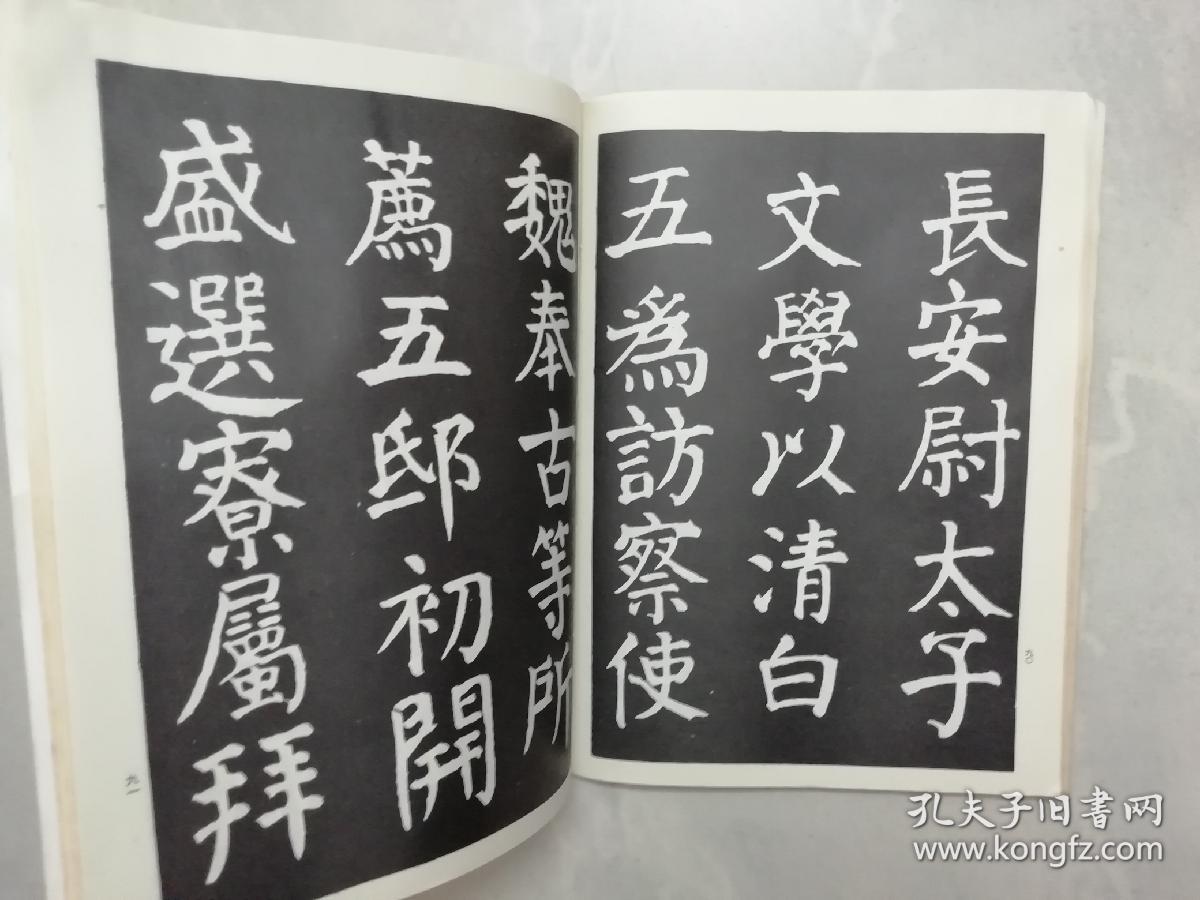 長安尉太子
文學以清白
五為訪察使
九〇
魏奉古等所
薦五邸初開
盛選寮屬拜
九一
孔夫子旧书网
www.kongfz.com